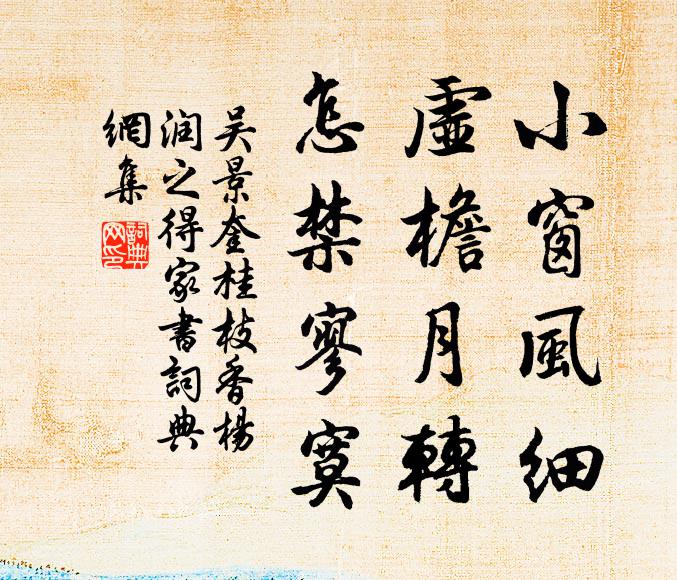 小窗風細
虛檐月轉
怎禁寥寞
吴景奎桂枝香楊
润之得家書詞典
網集
詞典
网印